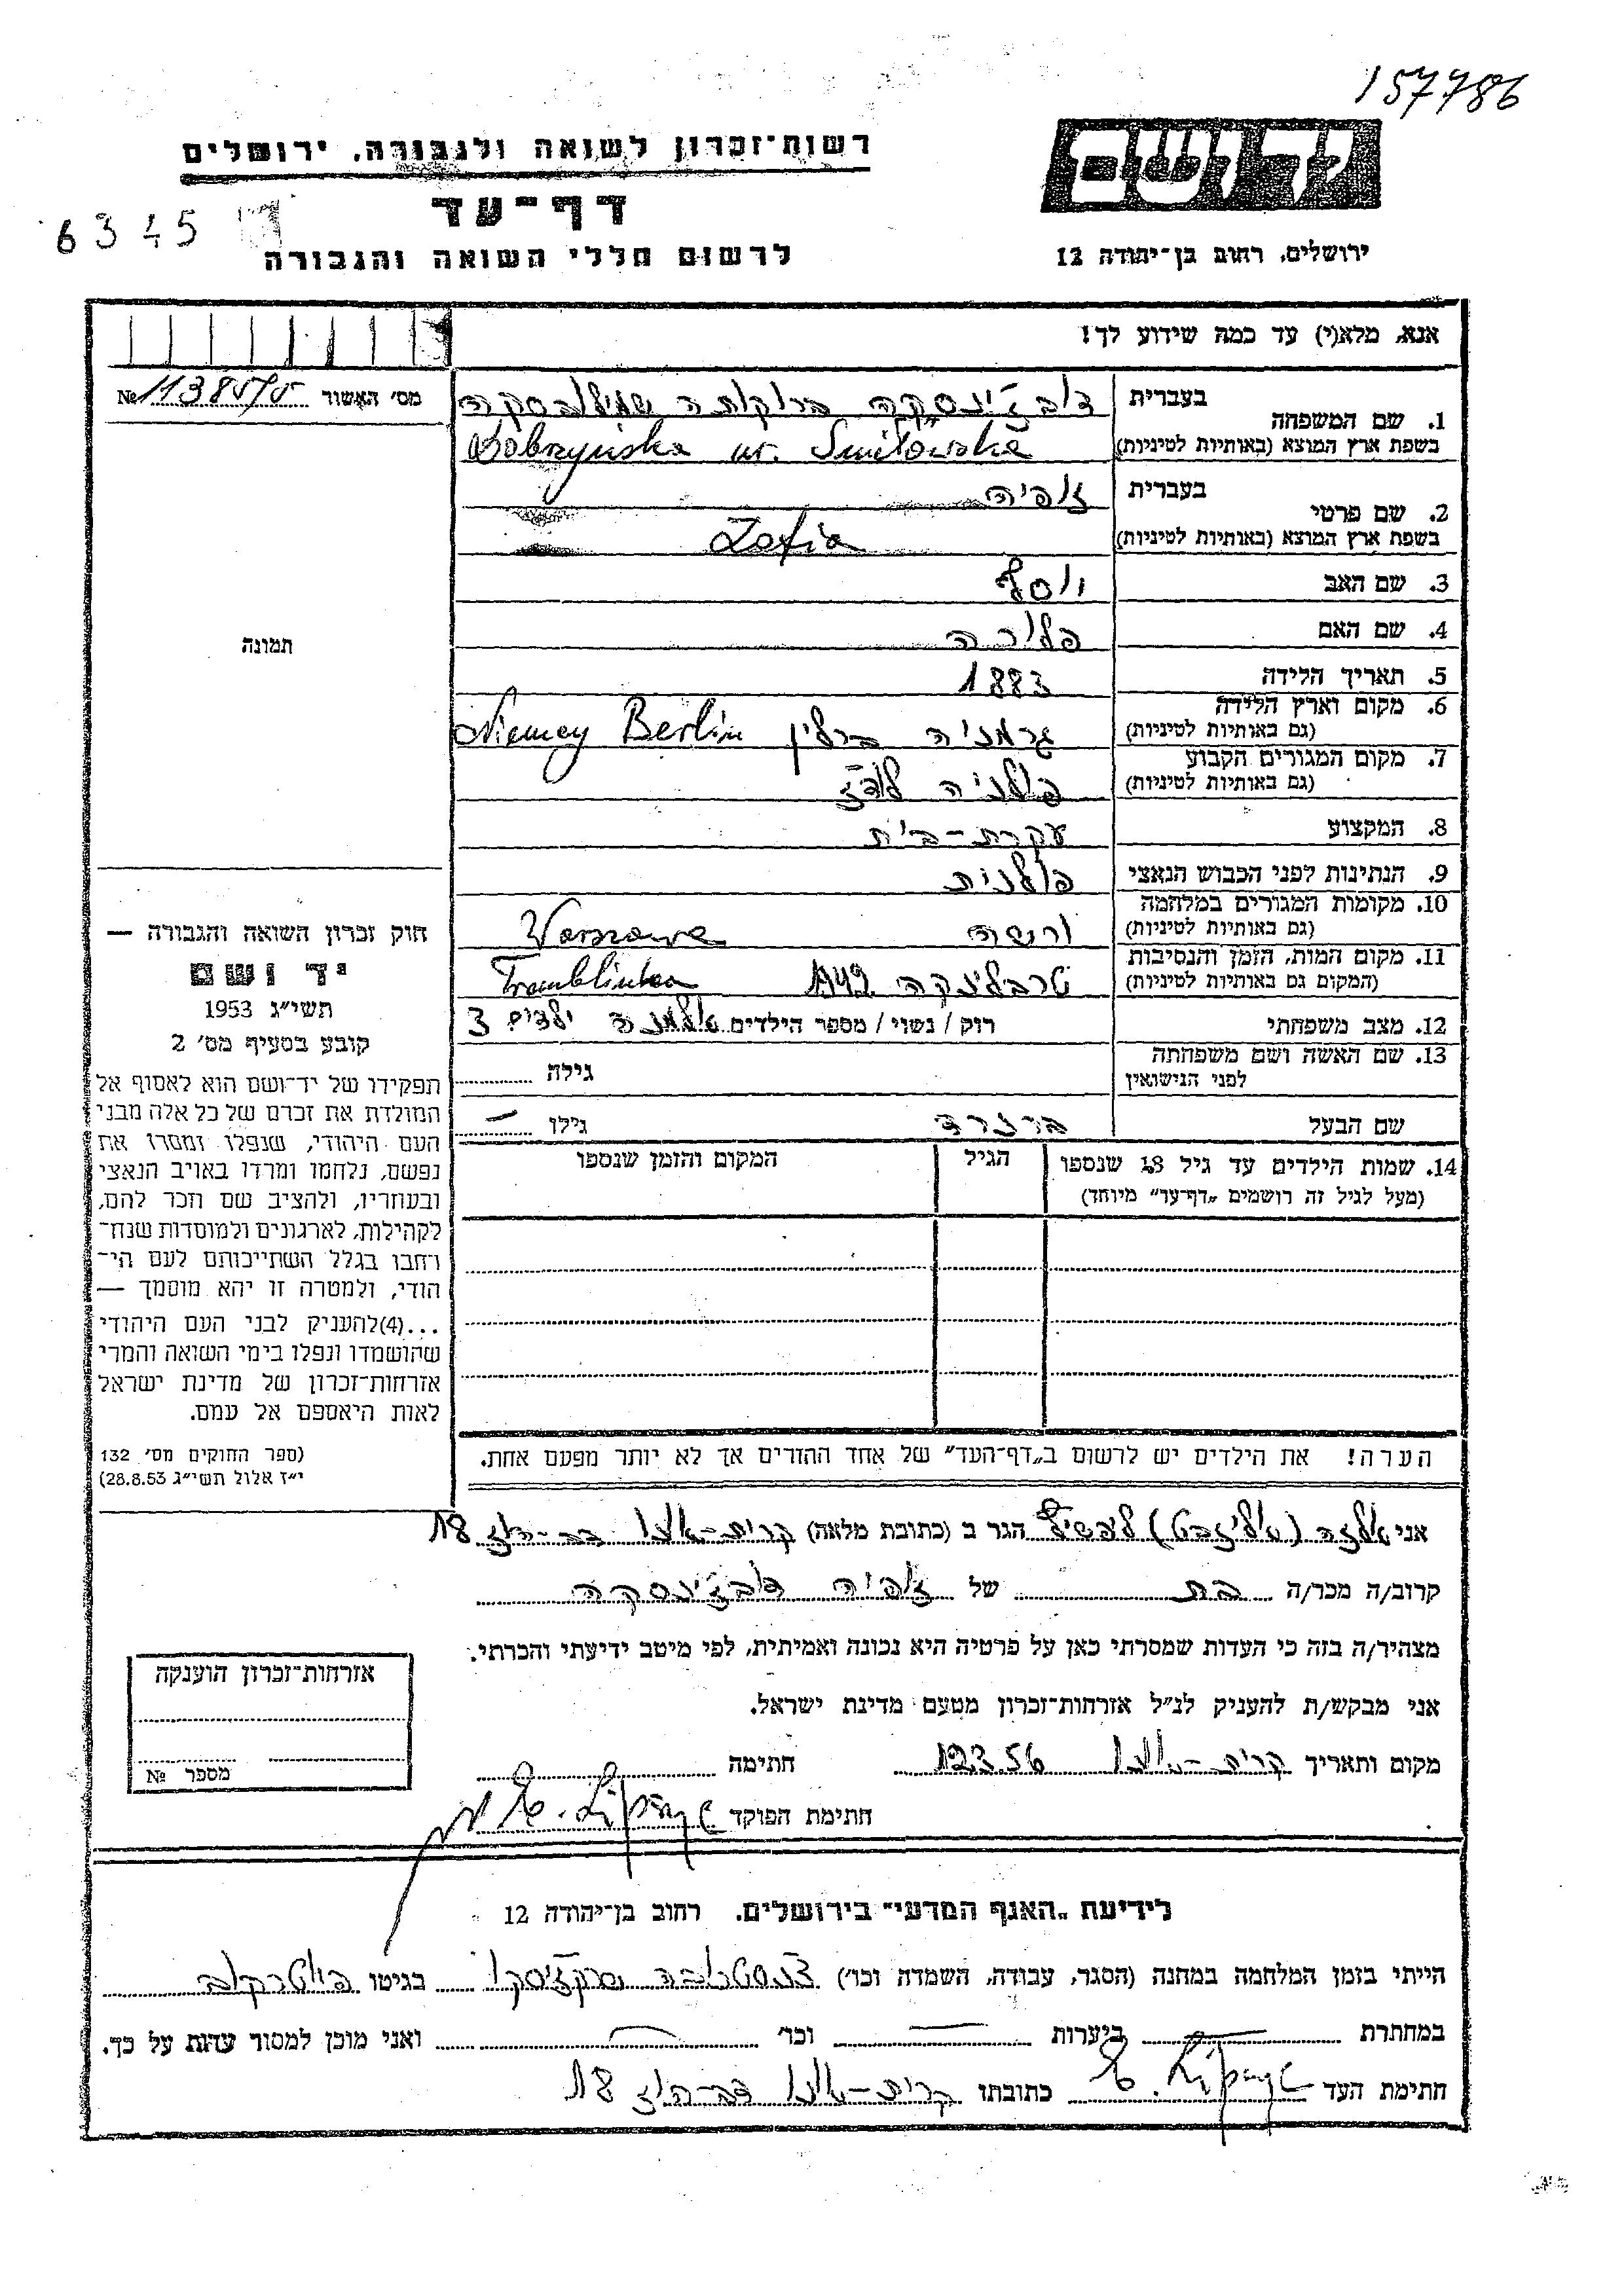 157786
רשות־זכרון לשואה ולגבורה, ירושלים
יד ושם
דף־עד
6345
לרשום חללי השואה והגבורה
ירושלים, רחוב בן־יהודה 12
אנא, מלא(י) עד כמה שידוע לך!
מס׳ האשור №
1. שם המשפחה
בעברית דובז'ינסקה שמילובסקה
בשפת ארץ המוצא (באותיות לטיניות) Dobrzyńska ur. Smiłowska
2. שם פרטי
בעברית זופיה
בשפת ארץ המוצא (באותיות לטיניות) Zofia
3. שם האב יוסף
4. שם האם
5. תאריך הלידה 1883
6. מקום וארץ הלידה (גם באותיות לטיניות) גרמניה ברלין Niemcy Berlin
7. מקום המגורים הקבוע (גם באותיות לטיניות) פולניה לודז
8. המקצוע עקרת-בית
9. הנתינות לפני הכבוש הנאצי פולנית
10. מקומות המגורים במלחמה (גם באותיות לטיניות) ורשה Warszawa
11. מקום המות, הזמן והנסיבות (המקום גם באותיות לטיניות) טרבלינקה 1942 Tremblinka
12. מצב משפחתי רוק / נשוי / מספר הילדים אלמנה ילדים 3
13. שם האשה ושם משפחתה לפני הנישואין גילה
שם הבעל ברנרד גילו —
14. שמות הילדים עד גיל 18 שנספו (מעל לגיל זה רושמים „דף־עד״ מיוחד) הגיל המקום והזמן שנספו
הערה! את הילדים יש לרשום ב„דף־העד״ של אחד ההורים אך לא יותר מפעם אחת.
תמונה
חוק זכרון השואה והגבורה —
יד ושם
תשי״ג 1953
קובע בסעיף מס׳ 2
תפקידו של יד־ושם הוא לאסוף אל
המולדת את זכרם של כל אלה מבני
העם היהודי, שנפלו ומסרו את
נפשם, נלחמו ומרדו באויב הנאצי
ובעוזריו, ולהציב שם וזכר להם,
לקהילות, לארגונים ולמוסדות שנח־
רחבו בגלל השתייכותם לעם הי־
הודי, ולמטרה זו יהא מוסמך —
...(4)להעניק לבני העם היהודי
שהושמדו ונפלו בימי השואה והמרי
אזרחות־זכרון של מדינת ישראל
לאות היאספם אל עמם.
(ספר החוקים מס׳ 132
י״ז אלול תשי״ג 28.8.53)
אני אלזה (אליזבט) ליפשיץ הגר ב (כתובת מלאה) קרית-אונו 18
קרוב/ה מכר/ה בת של זופיה דובז'ינסקה
מצהיר/ה בזה כי העדות שמסרתי כאן על פרטיה היא נכונה ואמיתית, לפי מיטב ידיעתי והכרתי.
אני מבקש/ת להעניק לנ״ל אזרחות־זכרון מטעם מדינת ישראל.
מקום ותאריך קרית-אונו 12.3.56 חתימה
חתימת הפוקד
אזרחות־זכרון הוענקה
מספר №
לידיעת „האגף המדעי״ בירושלים, רחוב בן־יהודה 12
הייתי בזמן המלחמה במחנה (הסגר, עבודה, השמדה וכו׳) בגיטו פיוטרקוב
במחתרת — ביערות — וכו׳ — ואני מוכן למסור עדות על כך.
חתימת העד כתובתו קרית-אונו 18